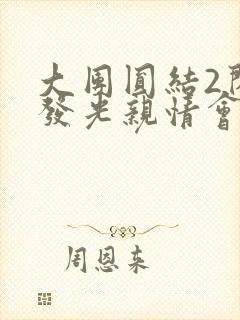 大團圓結2
發光親情會
周恩来